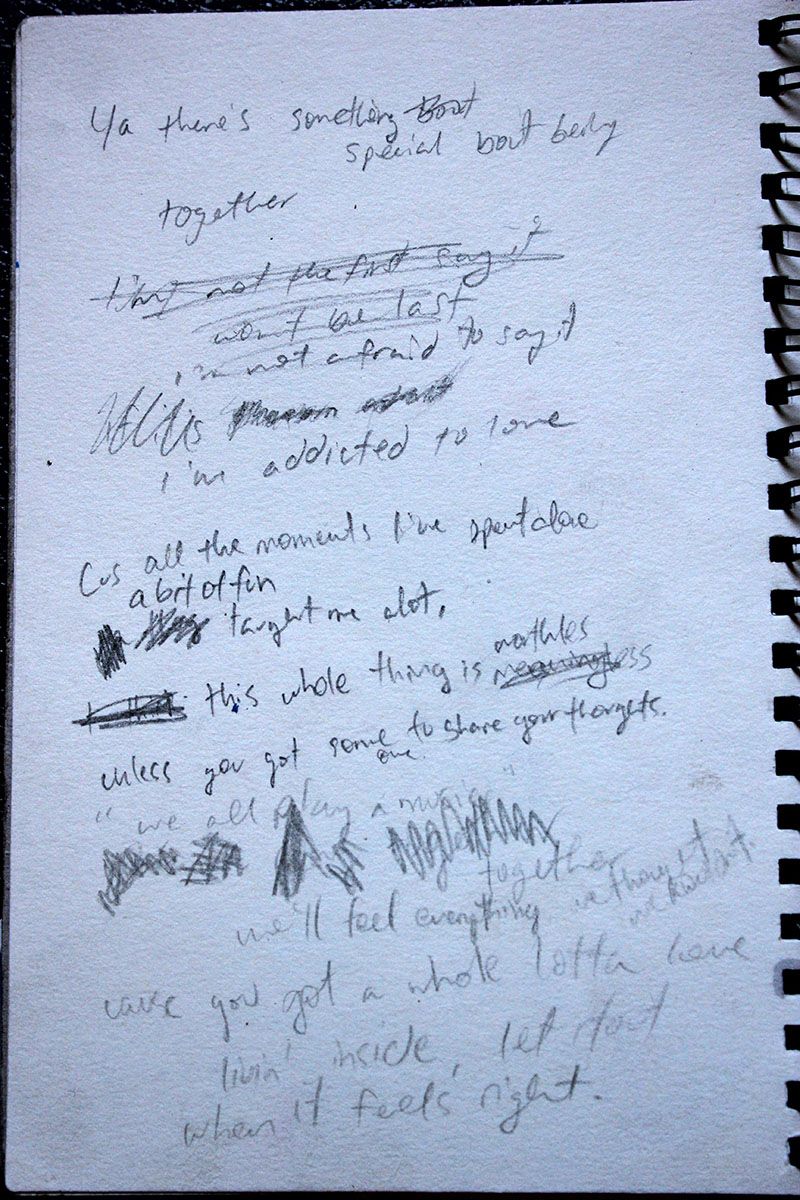 Ya there's something bout
special bout being
together
not the first say it
wont be last
i'm not afraid to say it
i'm addicted to love
Cus all the moments I've spent alone
a bit of fun
taught me alot,
worthles
this whole thing is meaningless
unless you got some to share your thoughts.
one
"we all play a music"
together
we'll feel everything we thought
we
cause you got a whole lotta love
livin' inside, let it out
when it feels right.